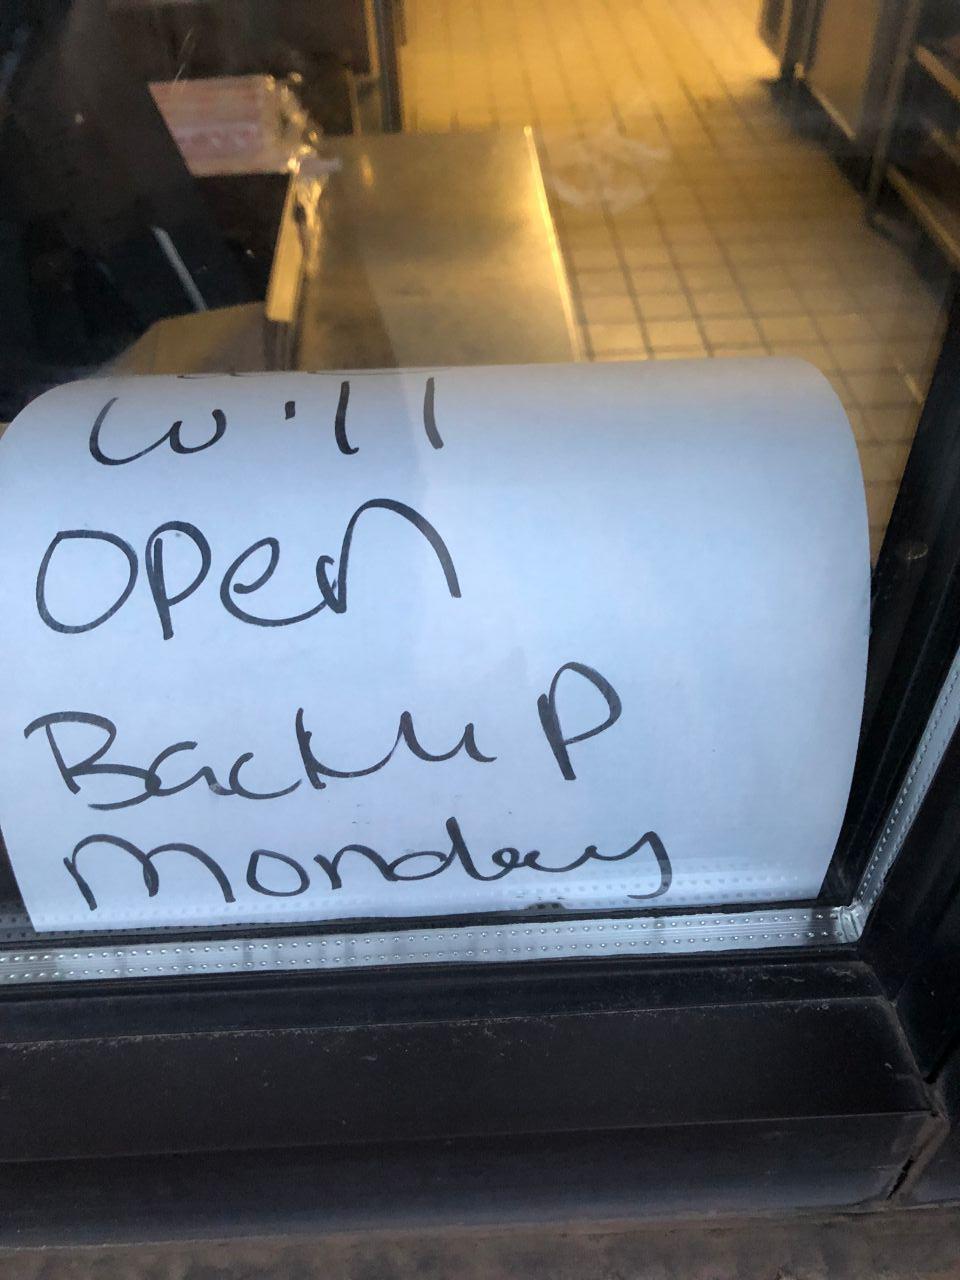 will
open
Back up
monday